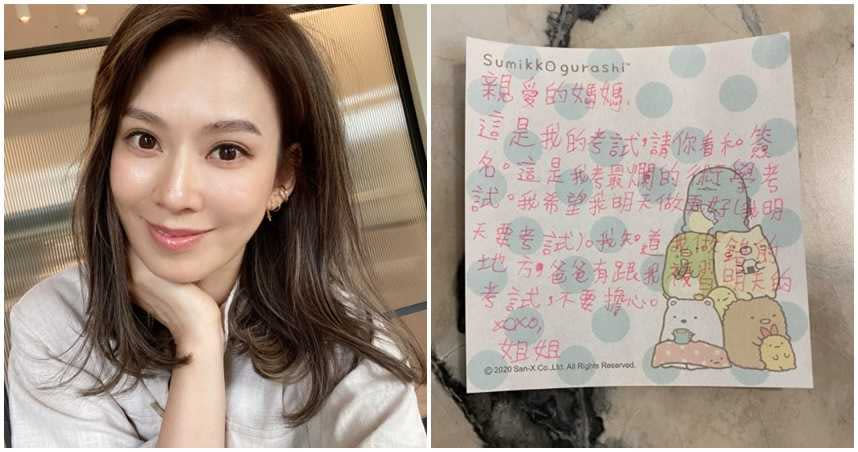 Sumikkogurashi™
親愛的媽媽,
這是我的考試,請你看和簽
名。這是我考最爛的術學考
試。我希望我明天做更好(我明
天要考試)。我知道我做錯的
地方,爸爸有跟我複習明天的
考試,不要擔心。
xoxo,
姐姐
©2020 San-X Co.,Ltd. All Rights Reserved.